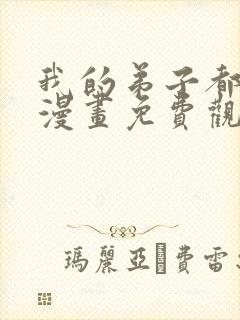 我的弟子都
漫畫免費觀
瑪麗亞·費雷